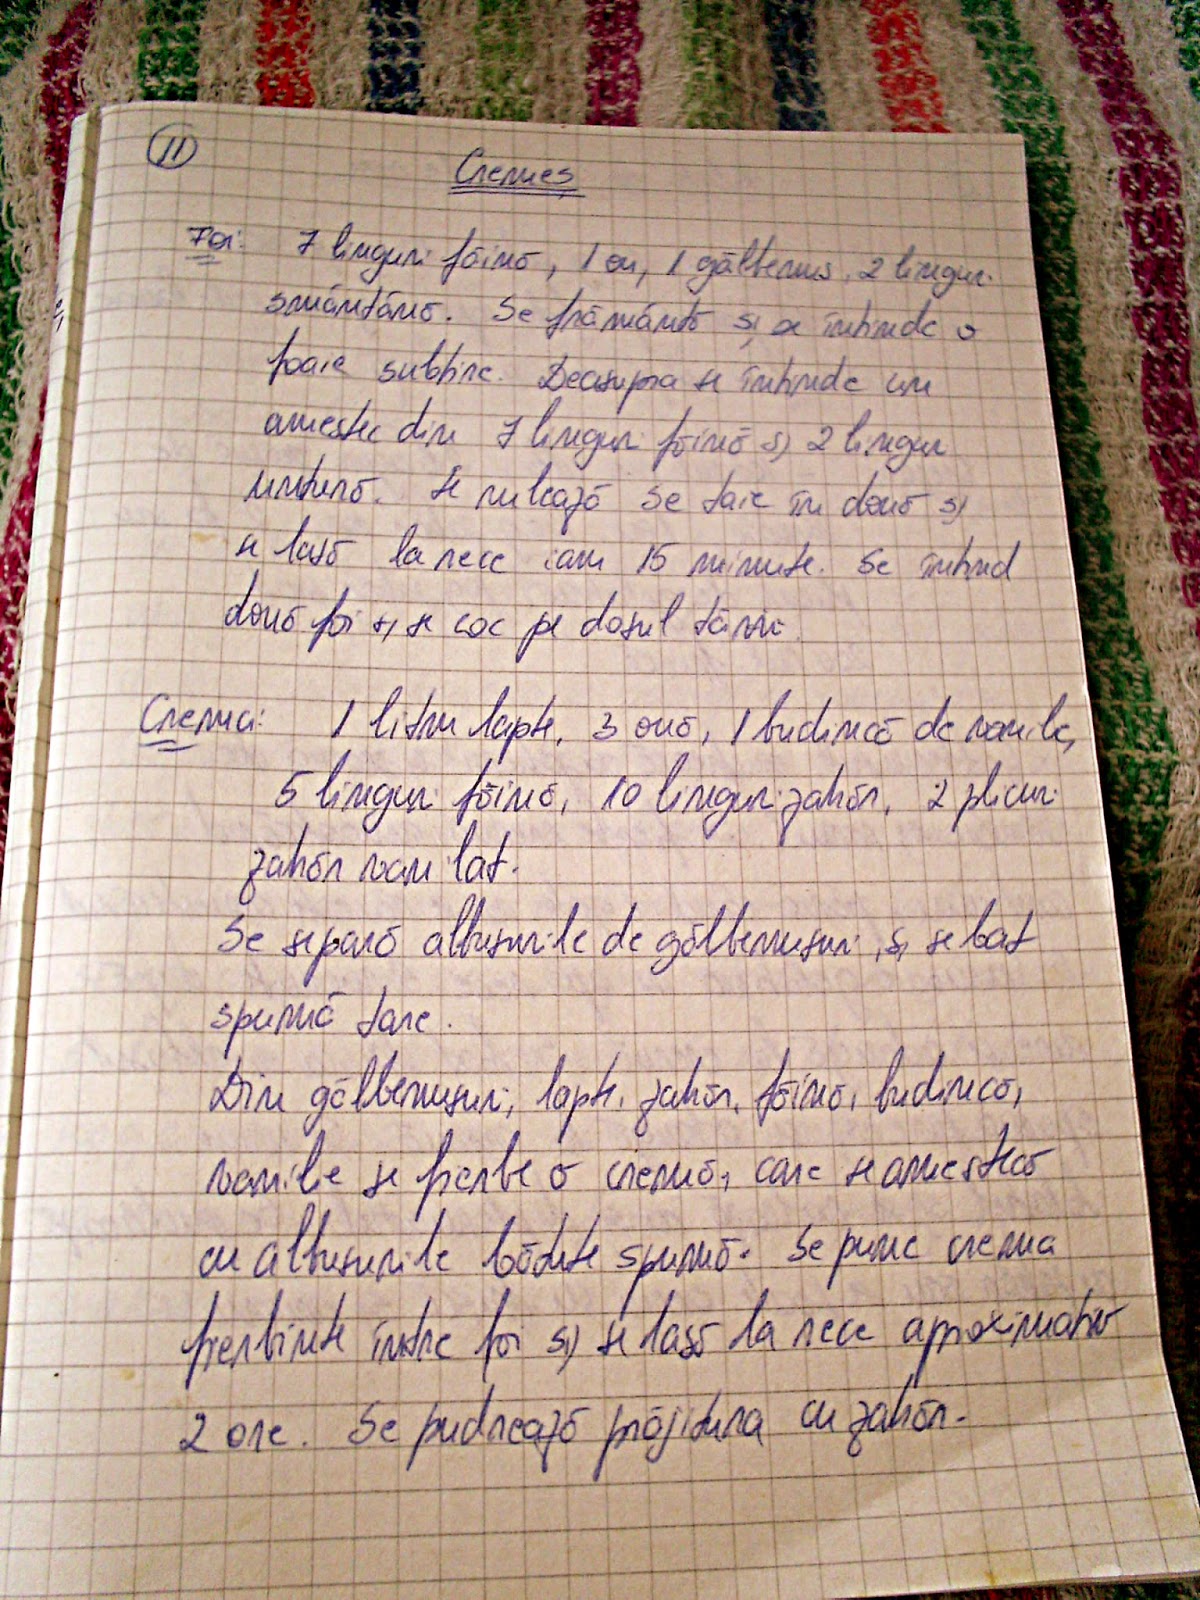 11
Cremeș
Foi: 7 linguri făină, 1 ou, 1 gălbenuș, 2 linguri
smântână. Se frământă și se întinde o
foaie subțire. Deasupra se întinde un
amestec din 7 linguri făină și 2 linguri
untură. Se rulează se taie în două și
se lasă la rece cam 15 minute. Se întind
două foi și se coc pe dosul tăvii.
Crema: 1 litru lapte, 3 ouă, 1 budincă de vanilie,
5 linguri făină, 10 linguri zahăr, 2 plicuri
zahăr vanilat.
Se separă albușurile de gălbenușuri, și se bat
spumă tare.
Din gălbenușuri, lapte, zahăr, făină, budincă,
vanilie se fierbe o cremă, care se amestecă
cu albușurile bătute spumă. Se pune crema
fierbinte între foi și se lasă la rece aproximativ
2 ore. Se pudrează prăjitura cu zahăr.